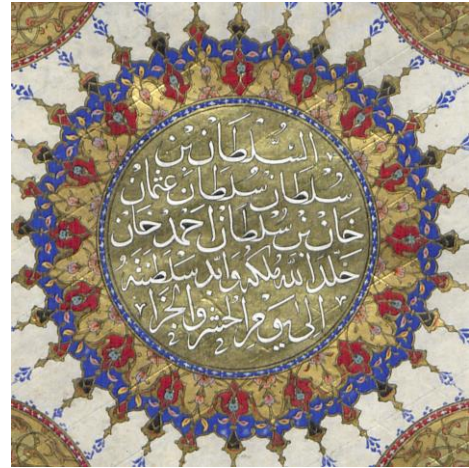 السُّلطان بن
سُلطان سُلطان عثمان
خان بن سُلطان احمد خان
خلد الله ملكه وابد سلطنته
الى يوم الحشر والجزا